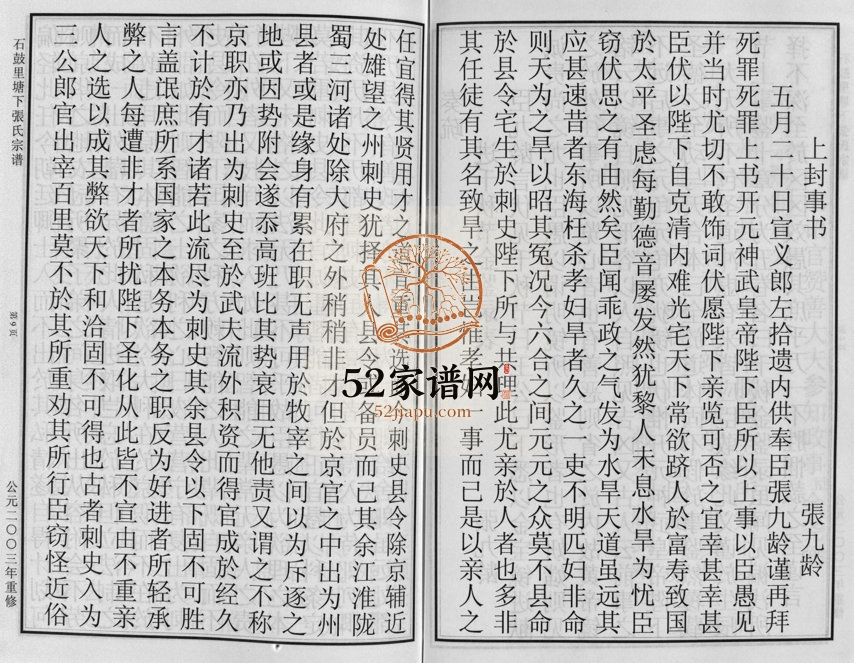 上封事书
張九龄
五月二十日宣义郎左拾遗内供奉臣張九龄谨再拜
死罪死罪上书开元神武皇帝陛下臣所以上事以臣愚见
并当时尤切不敢饰词伏愿陛下亲览可否之宜幸甚幸甚
臣伏以陛下自克清内难光宅天下常欲跻人於富寿致国
於太平圣虑每勤德音屡发然犹黎人未息水旱为忧臣
窃伏思之有由然矣臣闻乖政之气发为水旱天道虽远其
应甚速昔者东海枉杀孝妇旱者久之一吏不明匹妇非命
则天为之旱以昭其冤况今六合之间元元之众莫不县命
於县令宅生於刺史陛下所与共理此尤亲於人者也多非
其任徒有其名致旱之由岂惟孝妇一事而已是以亲人之
任宜得其贤用才之道宜重其选今刺史县令除京辅近
处雄望之州刺史犹择其人县令或备员而已其余江淮陇
蜀三河诸处除大府之外稍稍非才但於京官之中出为州
县者或是缘身有累在职无声用於牧宰之间以为斥逐之
地或因势附会遂忝高班比其势衰且无他责又谓之不称
京职亦乃出为刺史至於武夫流外积资而得官成於经久
不计於有才诸若此流尽为刺史其余县令以下固不可胜
言盖氓庶所系国家之本务本务之职反为好进者所轻承
弊之人每遭非才者所扰陛下圣化从此皆不宣由不重亲
人之选以成其弊欲天下和洽固不可得也古者刺史入为
三公郎官出宰百里莫不於其所重劝其所行臣窃怪近俗
石鼓里塘下張氏宗谱
第9页
公元二〇〇三年重修
52家谱网
52jiapu.com